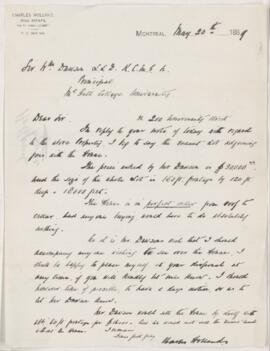 CHARLES HOLLAND,
REAL ESTATE,
MONTREAL, May 20th 1889
Sir Wm Dawson L.L.D. K.C.M.G. &
Principal
McGill College University
Dear Sir re 200 University Street
In reply to your note of today with regard
to the above Property, I beg to say the vacant lot adjoining
goes with the House.
The price asked by Mr Dawson is $30000
and the size of the whole Lot is frontage by 120 ft
deep
The House is in perfect order from roof to
cellar and anyone buying would have to do absolutely
nothing.
As it is Mr Dawson's wish that I should
accompany anyone wishing to see over the House. I
shall be happy to place myself at your disposal at
any time if you will kindly let me know. I should
however like if possible to have a days notice so as to
let Mr Dawson know.
Mr Dawson would sell the House by itself with
frontage for
I remain
Yours faithfully
Charles Holland